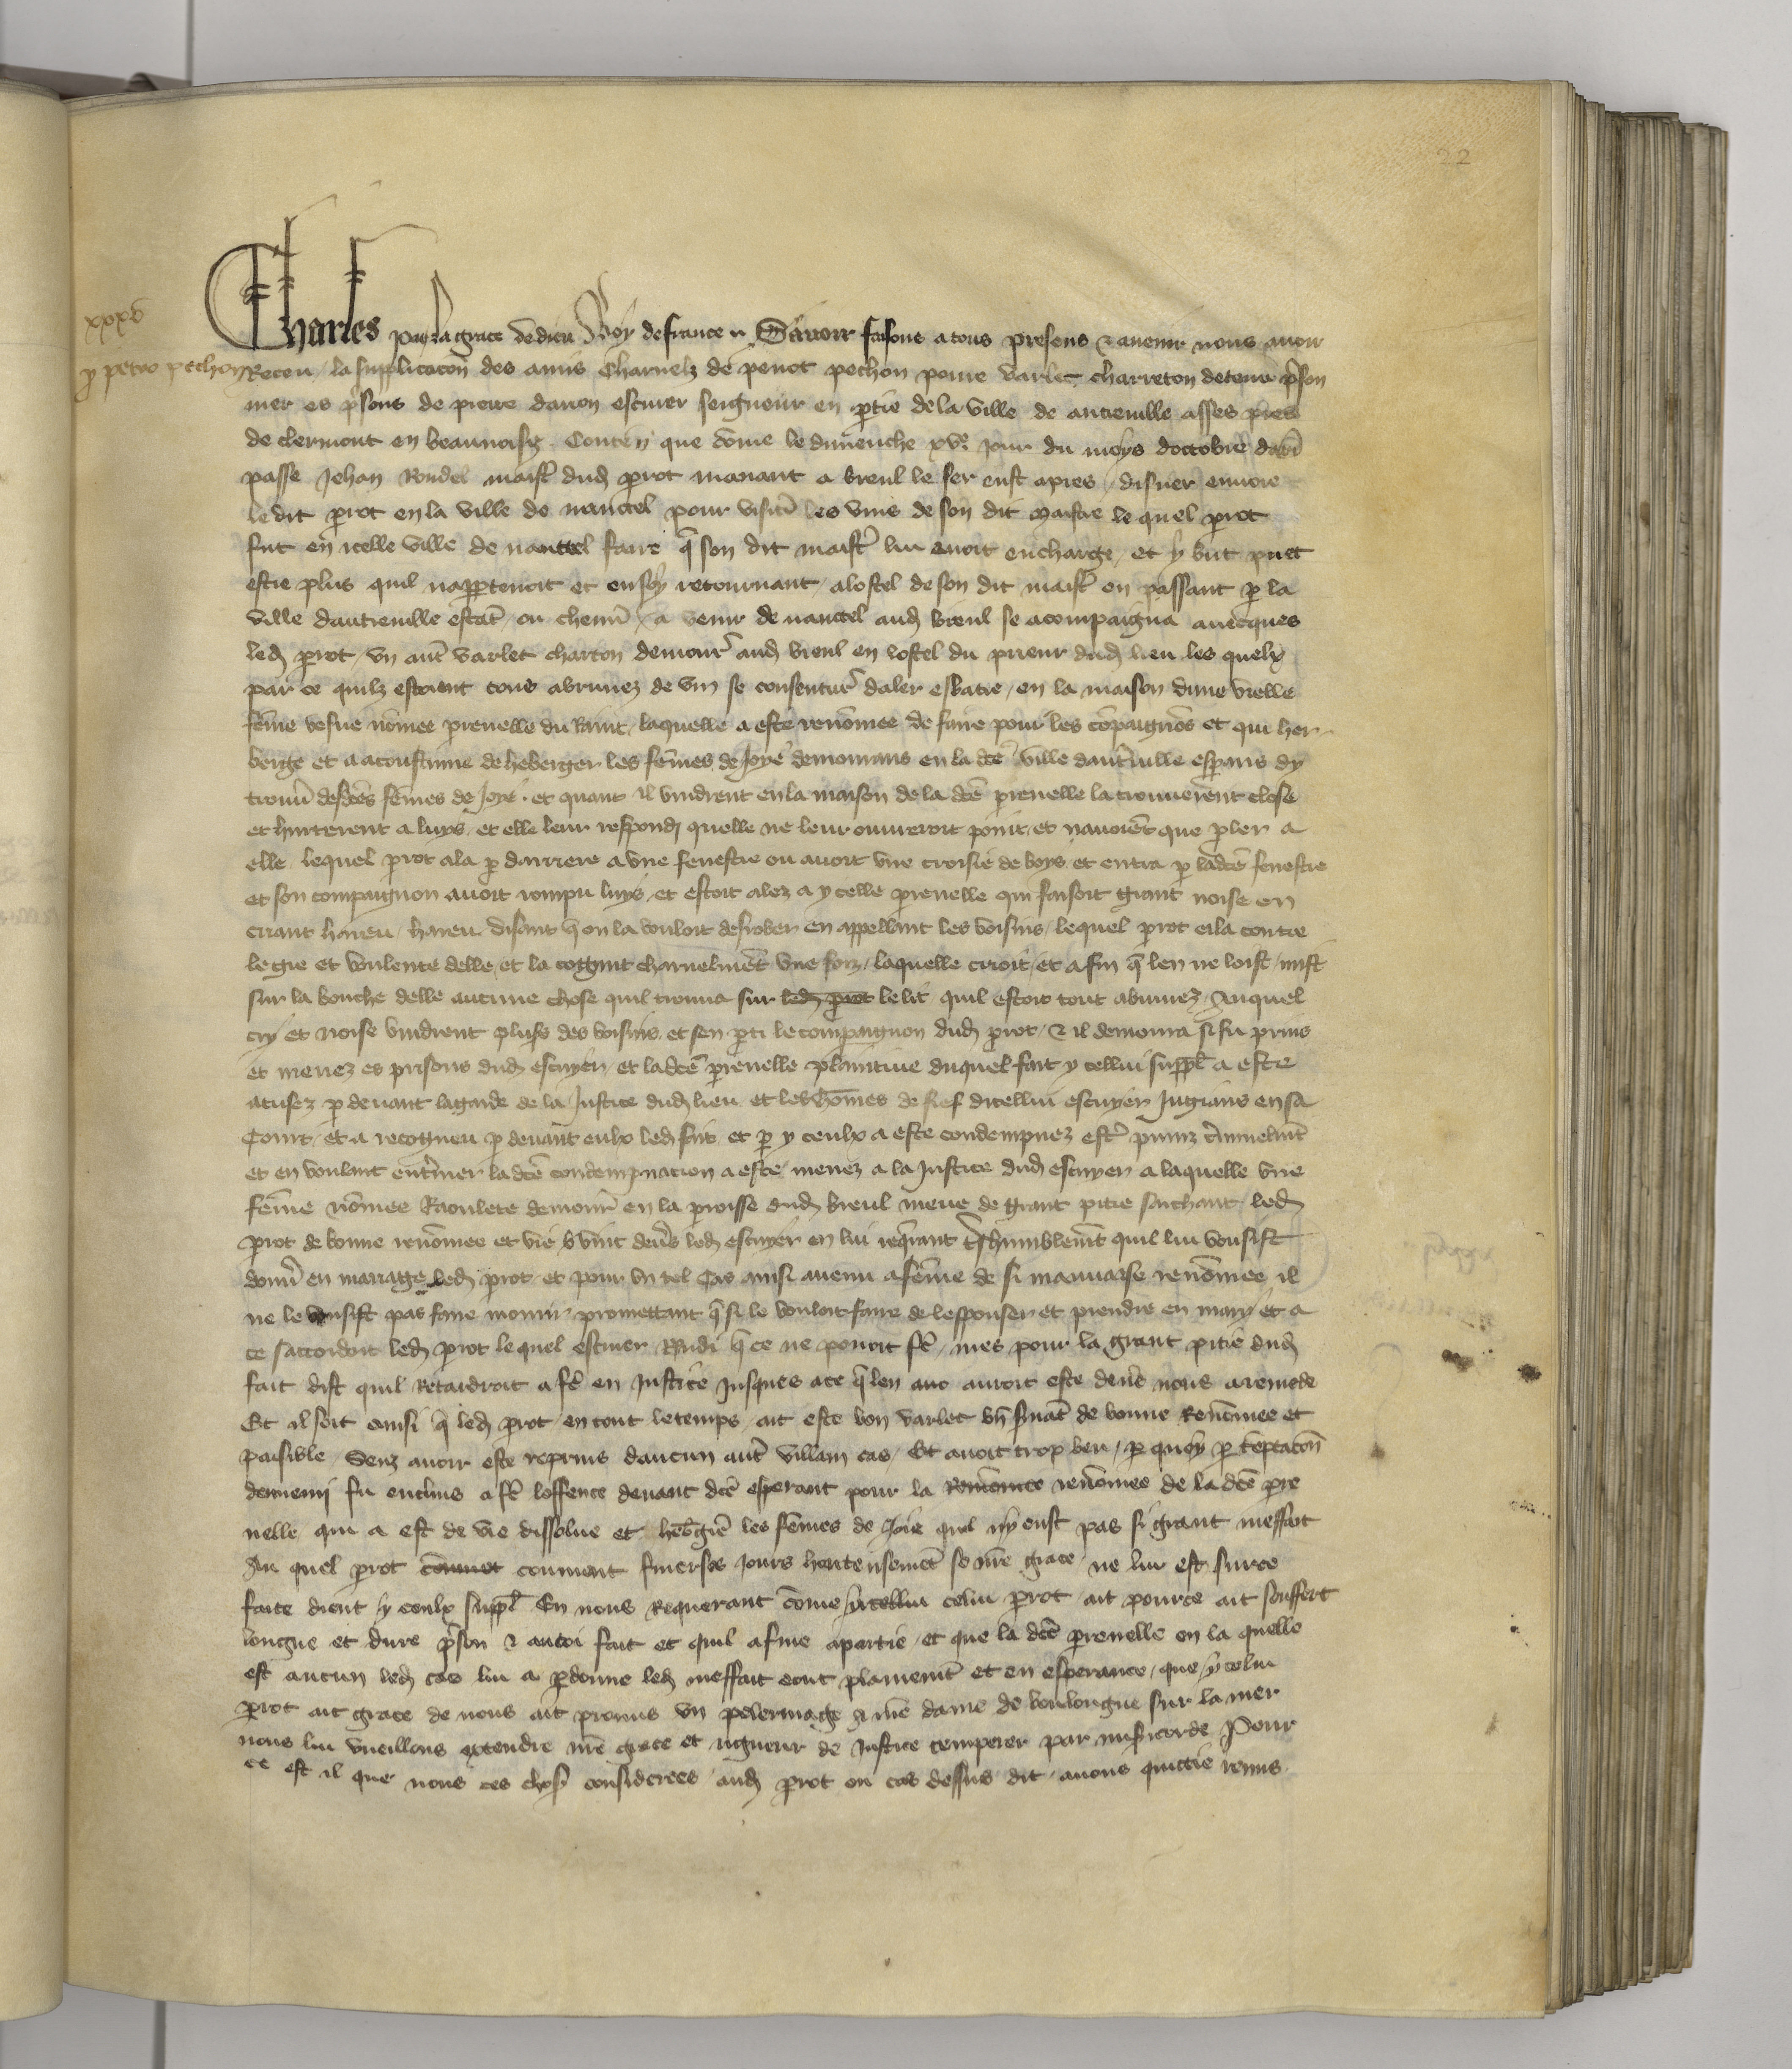 22
xxxv
p petro pechon
Charles par la grace de dieu Roy de france &c Savoir faisons a tous presens & avenir nous avoir
Receu la supplicacōn des amis Charnelz de perrot pechon povre varlet charreton detenu p̄son
nier es p̄sons de pierre danon escuier seigneur en p̄tie de la ville de autreville asses pres
de clermont en beauvoisiz Conten̄ que cōme le dimenche xve jour du moys doctobre darrē
passe Jehan Rondel maist̄ dud perrot manant a breul le ser eust apres disner envoie
le dit perrot en la ville de nanteel pour visit̄ les vins de son dit maistre lequel perrot
fut en icelle ville de nantel faire q̄ son dit maist̄ lui avoit enchargé et y but puet
estre plus quil nappertenoit et en soy retournant a lostel de son dit maist̄ en passant p la
ville dautreville estāt ou chemī a venir de nanteel aud breul se acompaigna avecques
led perrot un aut̄ varlet charton demour̄ aud breul en lostel du prieur dud lieu les quelx
par ce quilz estoient tous abruvez de vin se consentir̄ daler esbatre en la maison dune vielle
fēme vesve nōmee prenelle du Ruit laquelle a este renōmee de faire pour les cōpaignōs et qui her
berge et a acoustume de heberger les fēmes de joye demourans en la dcē ville dautreville esperans dy
trouv̄ desdcēs fēmes de joye. et quant il vindrent en la maison de la dcē prenelle la trouverent close
et hurterent a luys et elle leur respondi quelle ne leur ouvreroit point et navoiēt que p̄ler a
elle lequel perrot ala p darriere a une fenestre ou avoit une croisie de boys et entra p ladcē fenestre
et son compaignon avoit rompu luys et estoit alez a ycelle prenelle qui faisoit grant noise en
criant hareu hareu disant q̄ on la vouloit desrober en appellant les voisins lequel perrot ala contre
le gre et voulente delle et la cognut charnelmēt une foiz laquelle crioit et afin q̄ len ne loist mist
sur la bouche delle aucune chose quil trouva sur led perrot le lit quil estoit tout abuvrez Auquel
cry et noise vindrent plus̄s des voisins et sen p̄ti le compaignon dud perrot & il demoura si fu prins
et menez es prisons dud escuyer et ladcē prenelle plaintive duquel fait y cellui suppl̄ a este
acusez p devant la garde de la justice dud lieu et les hōmes de fief dicellui escuyer jugians en sa
Court et a recogneu p devant eulx led fait et p y ceulx a este condempnez est̄ puniz c̄iminelmēt
et en voulant ent̄iner ladcē condempnacion a este menez a la justice dud escuyer a laquelle une
fēme nōmee Raoulete demour̄ en la p̄roisse dud breul meue de grant pitie sachant led
perrot de bonne renōmee et vie vint dev̄s led escuyer en lui req̄rant t̄shumblemēt quil lui vousist
donn̄ en mariage led perrot et pour un tel cas ainsi avenu a fēme de si mauvaise renōmee il
ne le vousist pas faire mourir promettant q̄ si le vouloit faire de lespouser et prendre en mary et a
ce sacordoit led perrot lequel escuier Rndi q̄ ce ne pouoit f̄e mes pour la grant pitie dud
fait dist quil Retardroit a f̄e en justice jusques a ce q̄ len auc auroit este dev̄s nous a remede
Et il soit ainsi q̄ led perrot en tout le temps ait este bon varlet bn̄ s̄vāt de bonne Renōmee et
paisible Senz avoir este reprins daucun aut̄ villain cas Et avoit trop beu p quoy p temptacōn
dennemi fu enclins a f̄e loffence devant dcē esperant pour la Renōmee renōmee de la dcē pre
nelle qui a est de vie dissolue et heb̄gie les fēmes de joie quil ny eust pas si grant meffait
Au quel perrot convient convient finer ses jours honteusemēt se nr̄e grace ne lui est sur ce
faite dient y ceulx suppl̄ En nous Requerant cōme ycellui celui perrot ait pour ce ait souffert
longue et dure p̄son & autoi fait et quil a fine a partie et que la dcē prenelle en la quelle
est aucun led cas lui a p̄donne led meffait tout plainemēt et en esperance que ycelui
perrot ait grace de nous ait promis un pelerinage a nr̄e dame de boulongne sur la mer
nous lui vueillons extendre nr̄e grace et rigueur de justice temperer par mis̄icorde Pour
ce est il que nous ces chos̄ considerees aud perrot ou cas dessus dit avons quittie remis